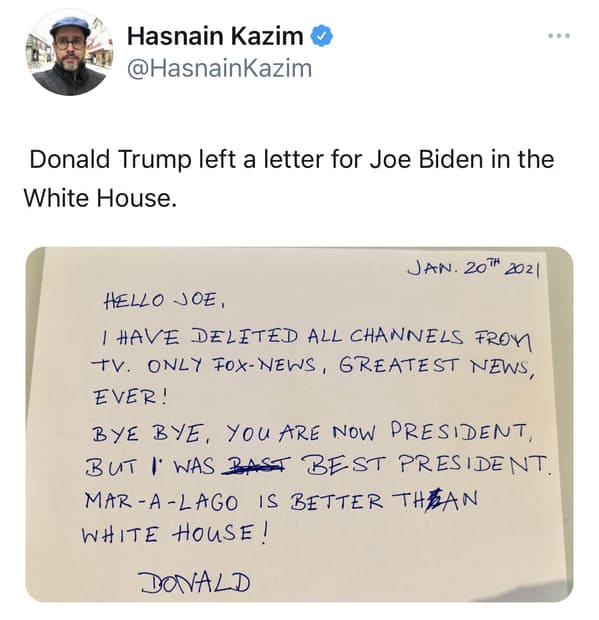 Hasnain Kazim
@HasnainKazim
Donald Trump left a letter for Joe Biden in the
White House.
JAN. 20TH 2021
HELLO JOE,
I HAVE DELETED ALL CHANNELS FROM
TV. ONLY FOX-NEWS, GREATEST NEWS,
EVER!
BYE BYE, YOU ARE NOW PRESIDENT,
BUT I WAS BAST BEST PRESIDENT.
MAR-A-LAGO IS BETTER THAN
WHITE HOUSE!
DONALD